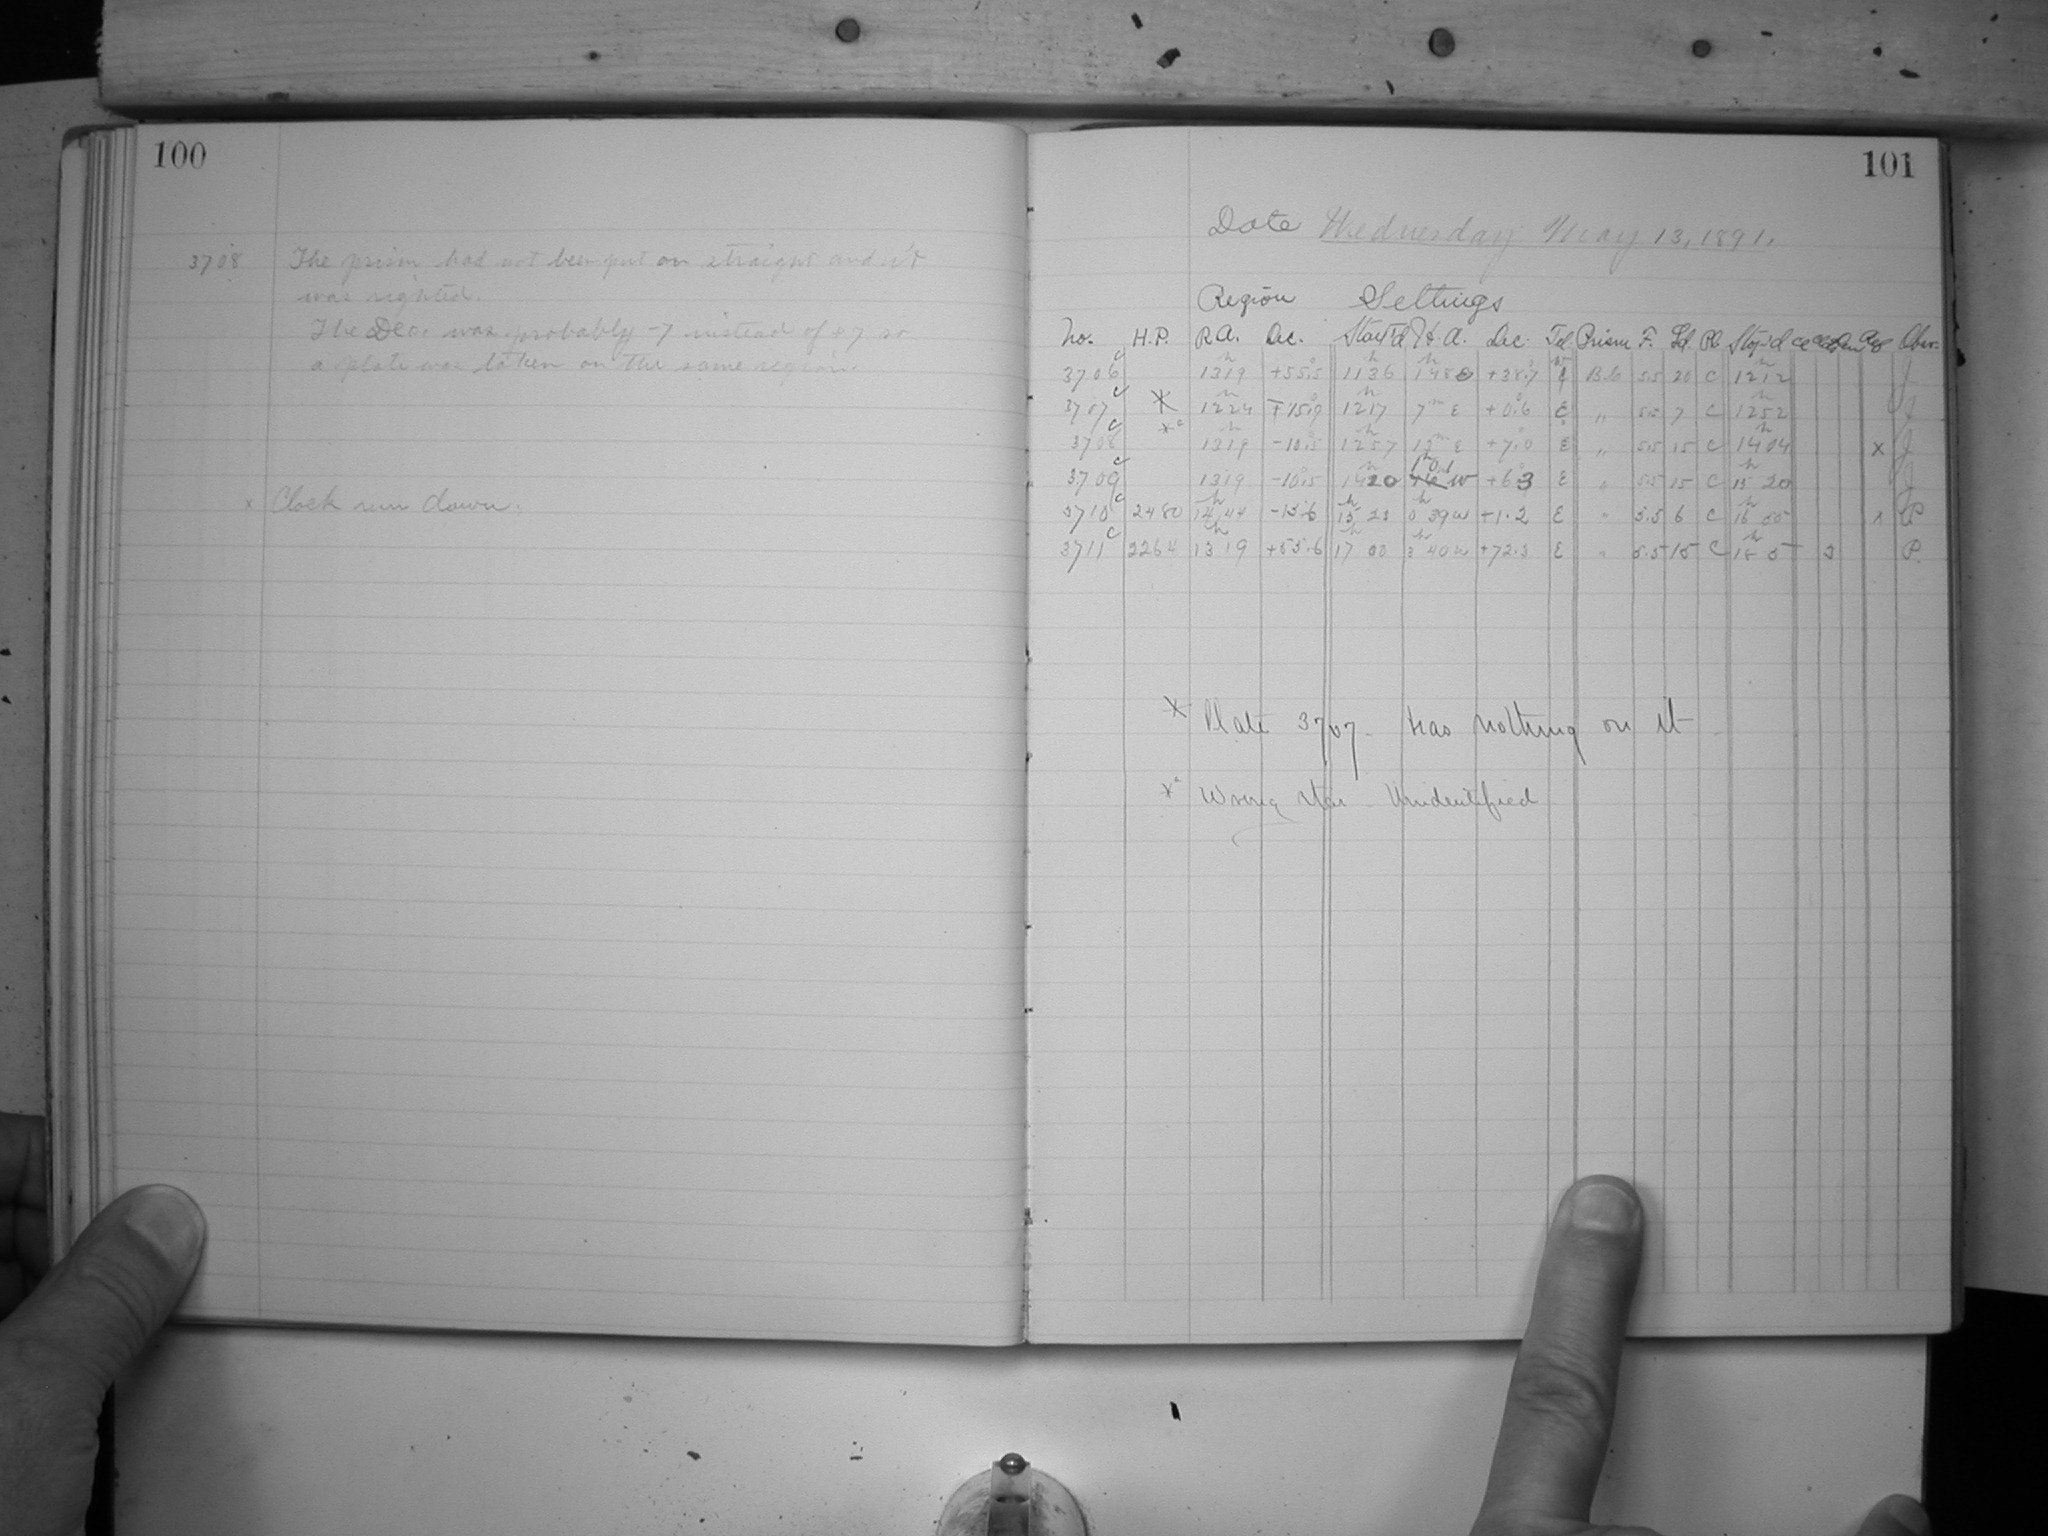 100
3708 The prism had not been put on straight and it
was righted.
The Dec. was probably -7 instead of +7 so
a plate was taken on the same region.
x Clock run down.
101
Date Wednesday May 13, 1891.
Region Settings
No. H.P. R.A. Dec. Start'd H.A. Dec. Tel. Prism F. Pl. Stop'd Obsr.
3706 c 13h19 +55.5 11h36 +38.7 5.5 20 C 12h12 J
3707 c X 12h24 +15.9 12h17 7m E +0.6 E " 5.5 7 C 12h52 J
3708 c 13h19 -10.5 12h57 12m E +7.0 E " 5.5 15 C 14h04 x J
3709 c 13 19 -10.5 14h20 W +6.3 E " 5.5 15 C 15 20 J
3710 c 2480 14h44 -13.6 15h23 0h39 W +1.2 E " 5.5 6 C 16h x P
3711 c 2264 13h19 +55.6 17h00 3h40 W +72.3 E " 5.5 15 C 18h5 P.
X Plate 3707 has nothing on it
Wrong star - Unidentified